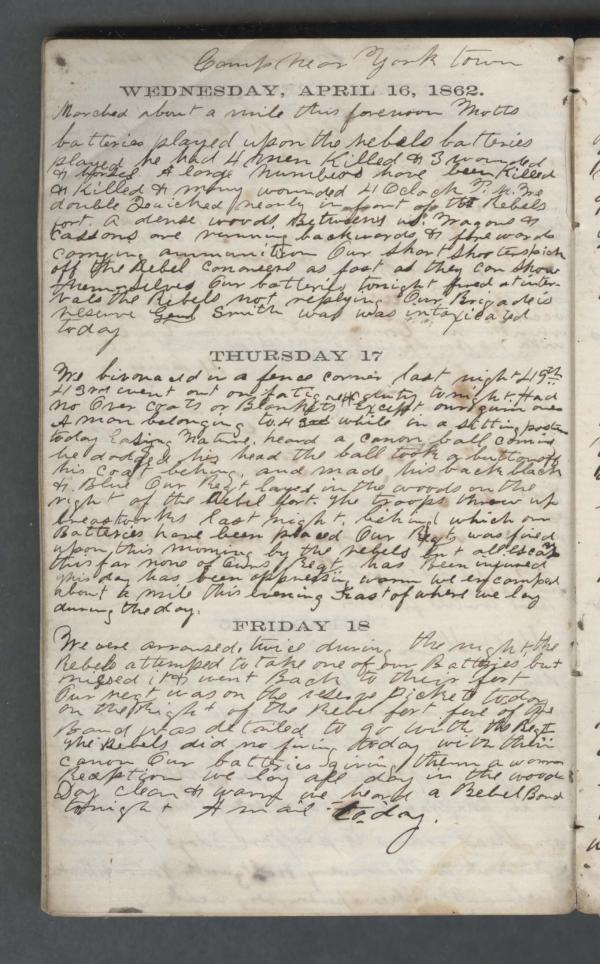 Camp Near York town
WEDNESDAY, APRIL 16, 1862.
Marched about a mile this forenoon Motts
batteries played upon the rebels batteries
played he had 4 men Killed & 3 wounded
& horses A large numbers have been Killed
& Killed & many wounded 4 Oclock P. M. We
double Quicked nearly in front of the Rebels
fort. A dense woods Between us. Wagons &
Cassons are running backwards & forewords
carrying ammunition Our Sharp Shooters pick
off the Rebel cononeers as fast as they can show
themselves Our batteries tonight fired at inter-
vals the Rebels not replying Our Brigade is
reserve Genl Smith was was intoxicated
today
THURSDAY 17
We bivouaced in a fence corner last night 49th
43rd went out on fatigue duty tonight. Had
no Over coats or Blankets Except our gum ones
A man belonging to 43rd while in a sitting posture
today Easing Nature, heard a canon ball coming
he dodged his head the ball took a button off
his coat behing, and made his back black
& Blue Our Regt layed in the woods on the
right of the Rebel fort. The troops threw up
breastworks last night, behing which our
Batteries have been placed Our Regt was fired
upon this morning by the rebels but all escap
thus far none of Ours Regt has been injured
This day has been oppressing warm we encamped
about a mile this evening East of where we lay
during the day.
FRIDAY 18
We were arroused, twice during the night, the
Rebels attemped to take one of our Batteries but
missed it & went Back to their fort
Our regt was on the reserve Picket today
on the Right of the Rebel fort five of the
Band was detailed to go with the Regt
The Rebels did no firing today with their
canon Our batteries giving them a warm
Reception we lay all day in the woods
Day clean & warm we heard a Rebel Band
tonight A mail today.